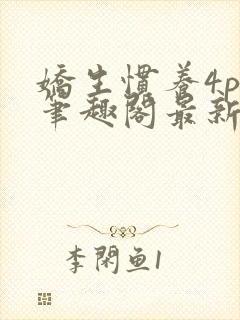 嬌生慣養4p
筆趣閣最新
李閑鱼1